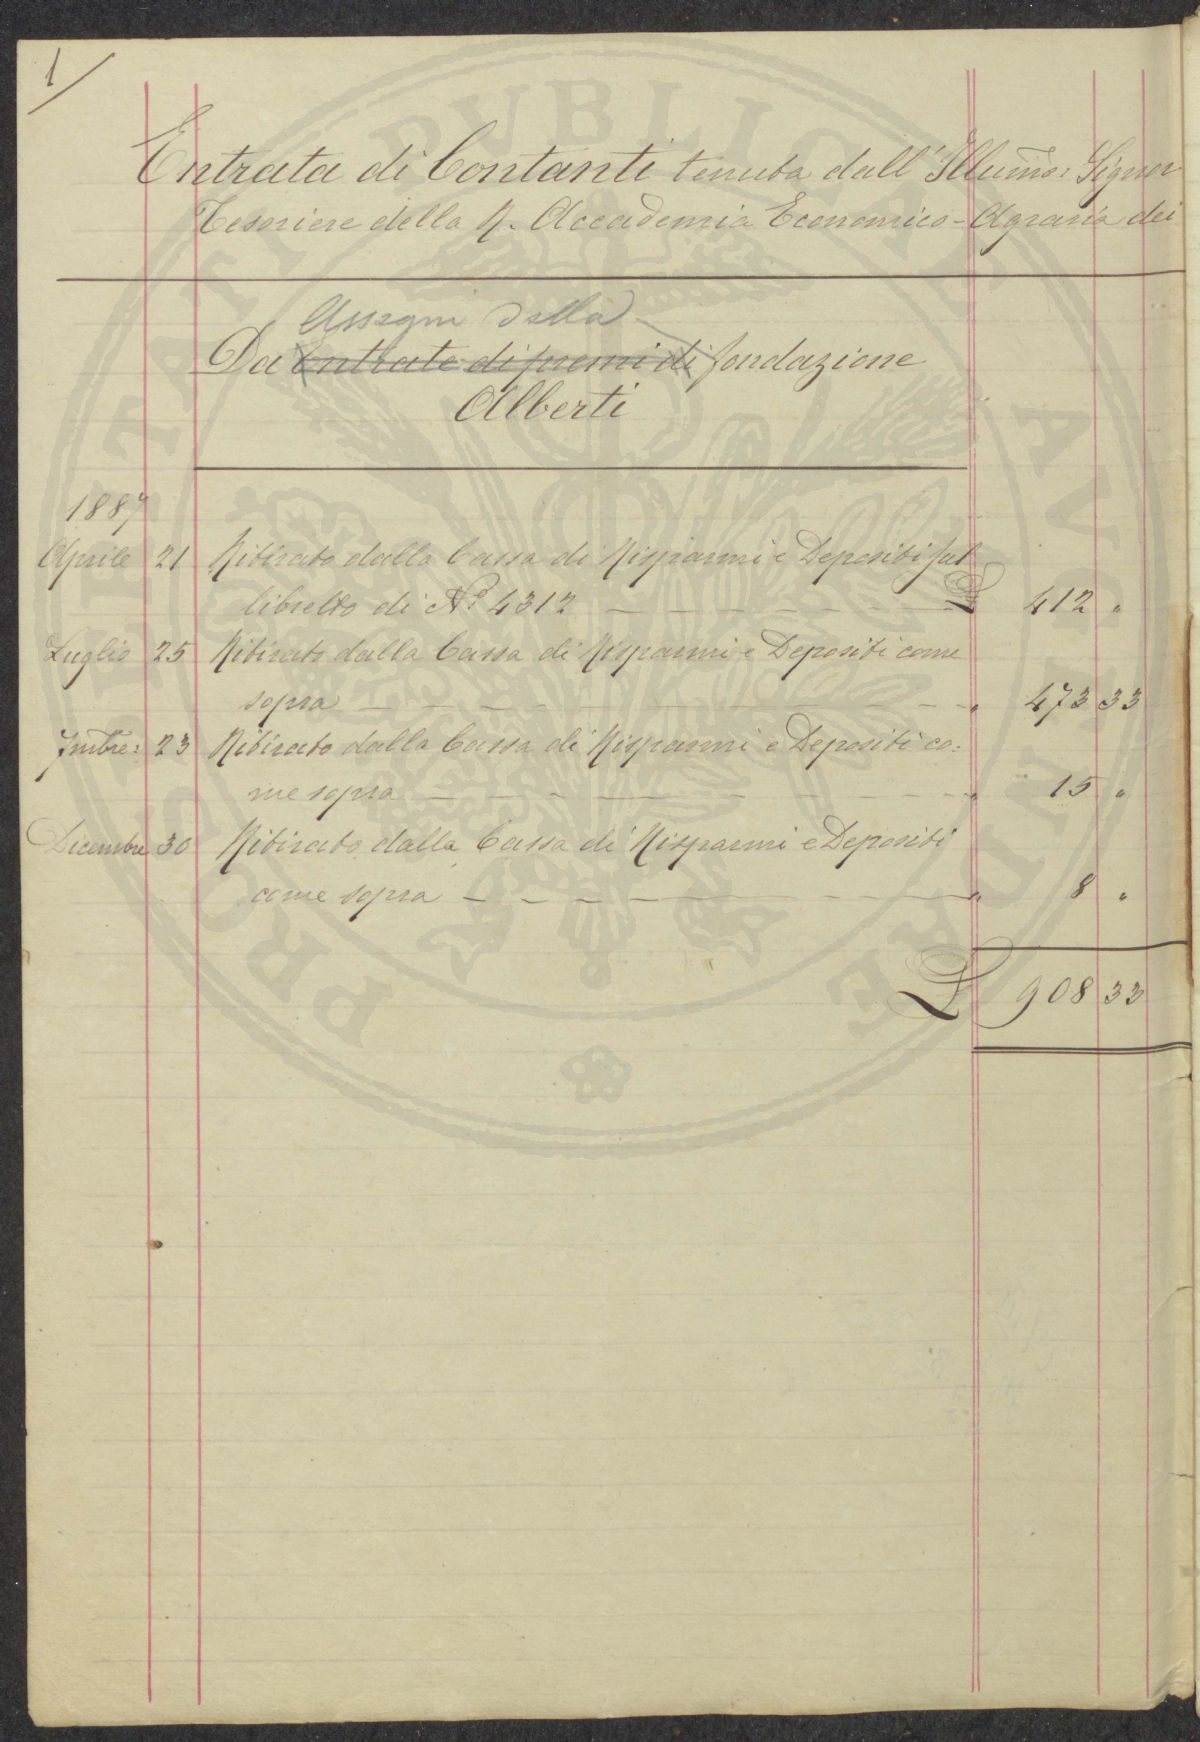 1
Entrata di Contanti tenuta dall'Illumo: Signor
Tesoriere della R. Accademia Economico-Agraria dei
Assegni della
Da entrate di premi di fondazione
Alberti
1887
Aprile 21 Ritirato dalla Cassa di Risparmi e Depositi sul
libretto di No 4312 £ 412 "
Luglio 25 Ritirato dalla Cassa di Risparmi e Depositi come
sopra " 473 33
7mbre: 23 Ritirato dalla Cassa di Risparmi e Depositi co=
me sopra " 15 "
Dicembre 30 Ritirato dalla Cassa di Risparmi e Depositi
come sopra " 8 "
£ 908 33
PROSPERITATI PVBLICAE AVGENDAE